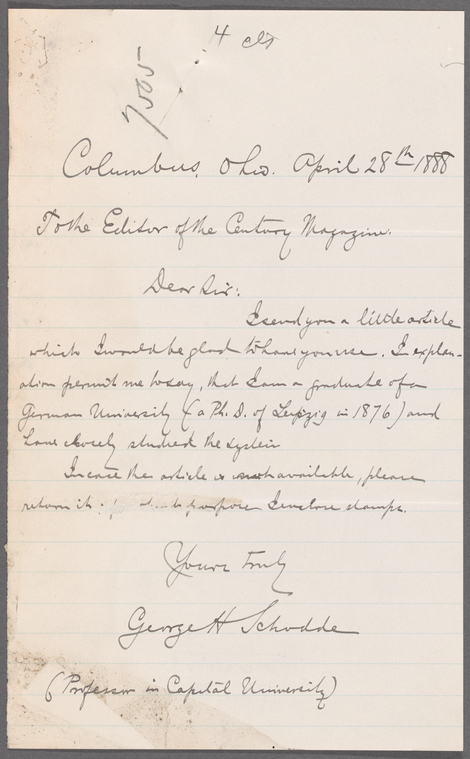 4
7505
Columbus, Ohio. April 28th 1888
To the Editor of the Century Magazine.
Dear Sir:
I send you a little article
which I would be glad to have you use. In explan-
ation permit me to say, that I am a graduate of a
German University (a Ph. D. of Leipzig in 1876) and
have closely studied the system
In case the article is not available, please
return it purpose I enclose stamps.
Yours truly
George H Schodde
(Professor in Capital University)